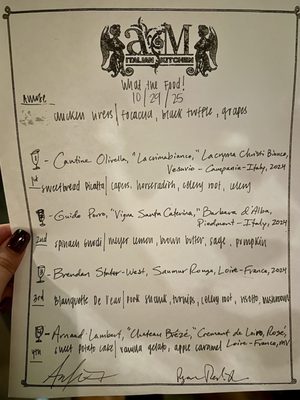 a&M
ITALIAN KITCHEN
What the Food!
10/29/25
Amuse
chicken livers / focaccia, black truffle, grapes
- Cantine Olivella, "Lacrimabianco," Lacryma Christi Bianco,
Vesuvio - Campania - Italy, 2024
1st
sweetbread Picatta / capers, horseradish, celery root, celery
- Guido Porro, "Vigna Santa Caterina," Barbera d'Alba,
Piedmont - Italy, 2024
2nd
spinach gnudi / meyer lemon, brown butter, sage, pumpkin
- Brendan Stater-West, Saumur Rouge, Loire - France, 2024
3rd
Blanquette De Veau / pork, turnips, celery root, risotto, mushrooms
- Arnaud Lambert, "Chateau Brézé," Cremant de Loire, Rosé,
Loire - France, NV
4th
sweet potato cake / vanilla gelato, apple caramel